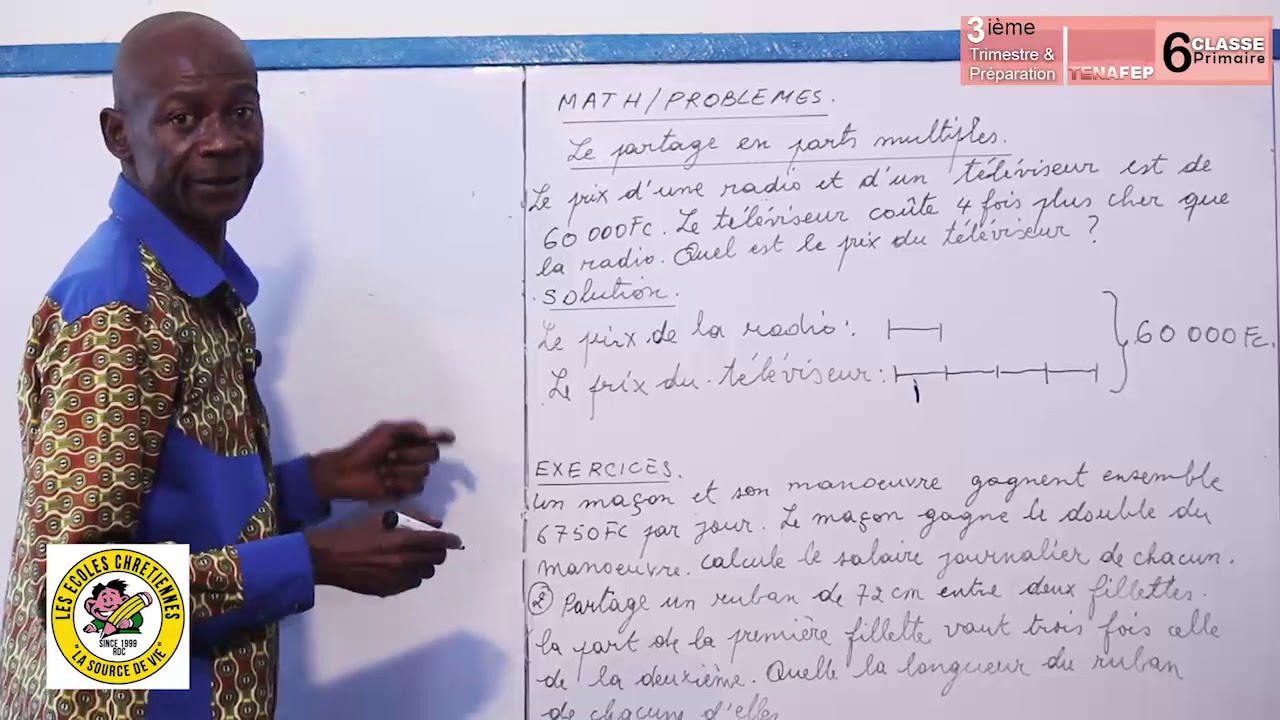 3ième
Trimestre &
Préparation
TENAFEP
6 CLASSE
Primaire
MATH/PROBLEMES.
Le partage en parts multiples.
Le prix d'une radio et d'un téléviseur est de
60 000Fc. Le téléviseur coûte 4 fois plus cher que
la radio. Quel est le prix du téléviseur ?
Solution.
Le pirx de la radio :
60 000 Fc.
Le prix du téléviseur :
EXERCICES.
Un maçon et son manoeuvre gagnent ensemble
6750FC par jour. Le maçon gagne le double du
manoeuvre. Calcule le salaire journalier de chacun.
2° Partage un ruban de 72 cm entre deux fillettes.
La part de la première fillette vaut trois fois celle
de la deuxième. Quelle la longueur du ruban
de chacune d'elles
LES ECOLES CHRETIENNES
SINCE 1999
RDC
"LA SOURCE DE VIE"